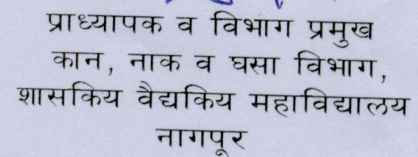 प्राध्यापक व विभाग प्रमुख
कान, नाक व घसा विभाग,
शासकिय वैद्यकिय महाविद्यालय
नागपूर